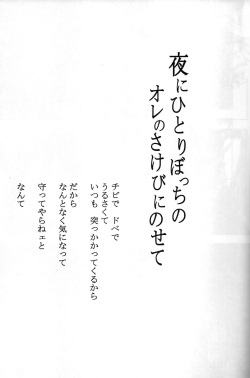 夜にひとりぼっちの
オレのさけびにのせて
チビで ドベで
うるさくて
いつも 突っかかってくるから
だから
なんとなく気になって
守ってやらねェと
なんて